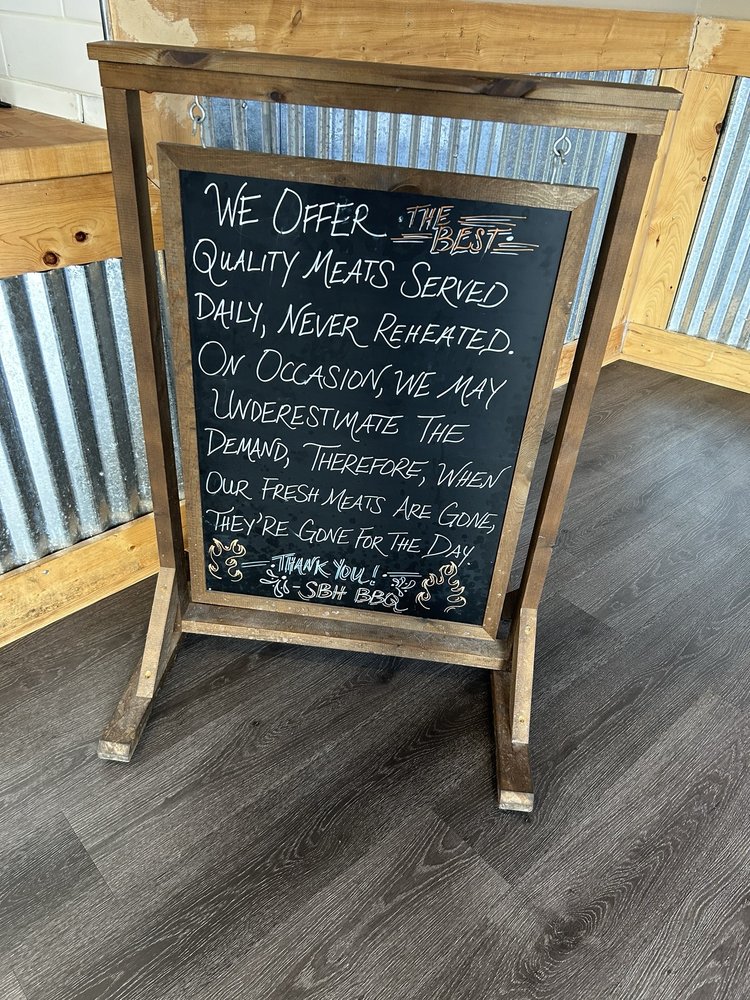 WE OFFER THE BEST
QUALITY MEATS SERVED
DAILY, NEVER REHEATED.
ON OCCASION, WE MAY
UNDERESTIMATE THE
DEMAND, THEREFORE, WHEN
OUR FRESH MEATS ARE GONE,
THEY'RE GONE FOR THE DAY.
THANK YOU!
-SBH BBQ